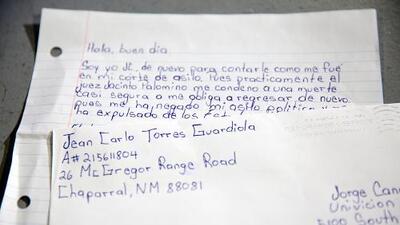 Hola, buen dia.
Soy yo JC, de nuevo para contarle como me fué
en mi corte de asilo. Pues practicamente el
juez Jacinto Palomino me condeno a una muerte
casi segura a mé obliga a regresar de nuevo
pues me ha negado mi asilo politico
ha expulsado de los
Jean Carlo Torres Guardiola
A# 215611804
26 McGregor Range Road
Chaparral, NM 88081
Jorge
Univicion
5100 South